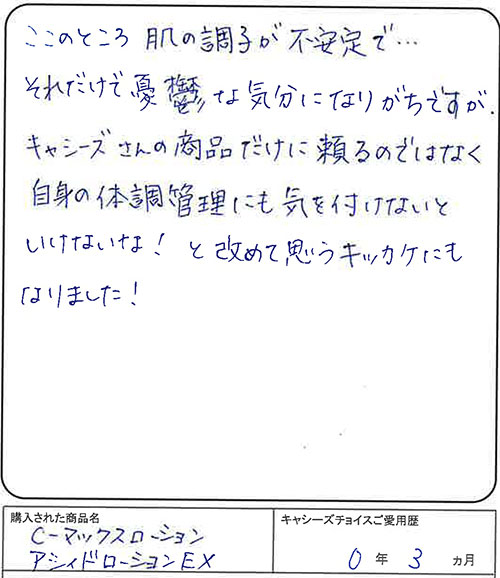 ここのところ 肌の調子が不安定で…
それだけで憂鬱な気分になりがちですが、
キャシーズさんの商品だけに頼るのではなく
自身の体調管理にも気を付けないと
いけないな! と改めて思うキッカケにも
なりました!
購入された商品名
C-マックスローション
アシィドローションEX
キャシーズチョイスご愛用歴
0年 3ヵ月